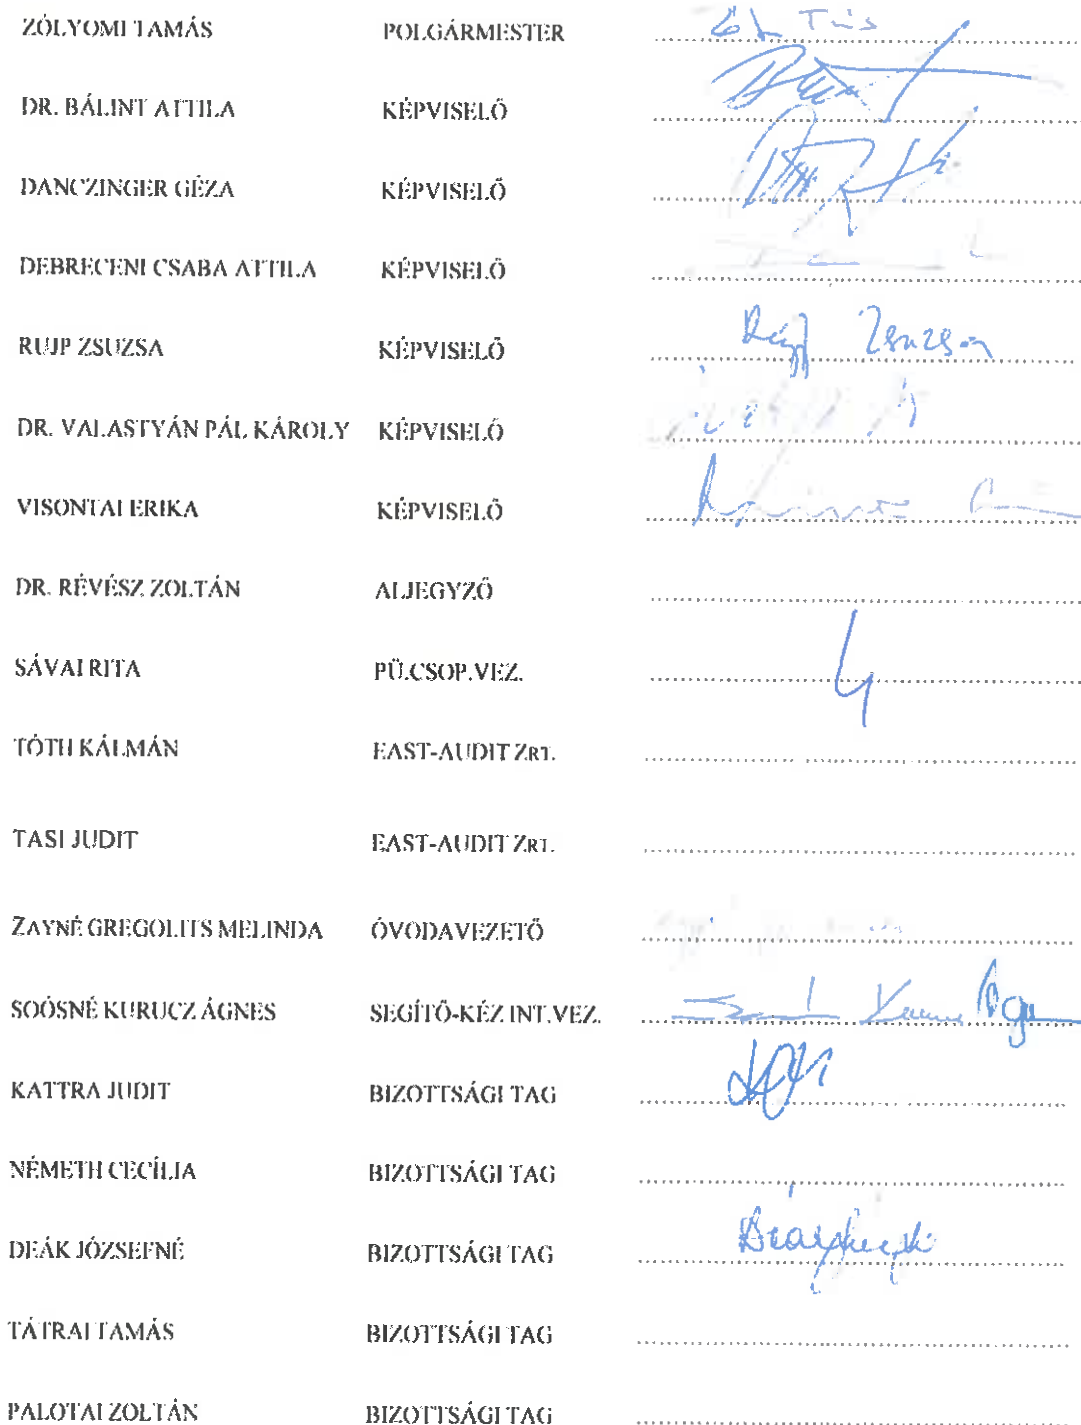 ZÓLYOMI TAMÁS POLGÁRMESTER
DR. BÁLINT ATTILA KÉPVISELŐ
DANCZINGER GÉZA KÉPVISELŐ
DEBRECENI CSABA ATTILA KÉPVISELŐ
RUJP ZSUZSA KÉPVISELŐ Zsuzsa
DR. VALASTYÁN PÁL KÁROLY KÉPVISELŐ
VISONTAI ERIKA KÉPVISELŐ
DR. RÉVÉSZ ZOLTÁN ALJEGYZŐ
SÁVAI RITA PÜ.CSOP.VEZ.
TÓTH KÁLMÁN EAST-AUDIT ZRT.
TASI JUDIT EAST-AUDIT ZRT.
ZAYNÉ GREGOLITS MELINDA ÓVODAVEZETŐ
SOÓSNÉ KURUCZ ÁGNES SEGÍTŐ-KÉZ INT.VEZ.
KATTRA JUDIT BIZOTTSÁGI TAG
NÉMETH CECÍLIA BIZOTTSÁGI TAG
DEÁK JÓZSEFNÉ BIZOTTSÁGI TAG
TÁTRAI TAMÁS BIZOTTSÁGI TAG
PALOTAI ZOLTÁN BIZOTTSÁGI TAG